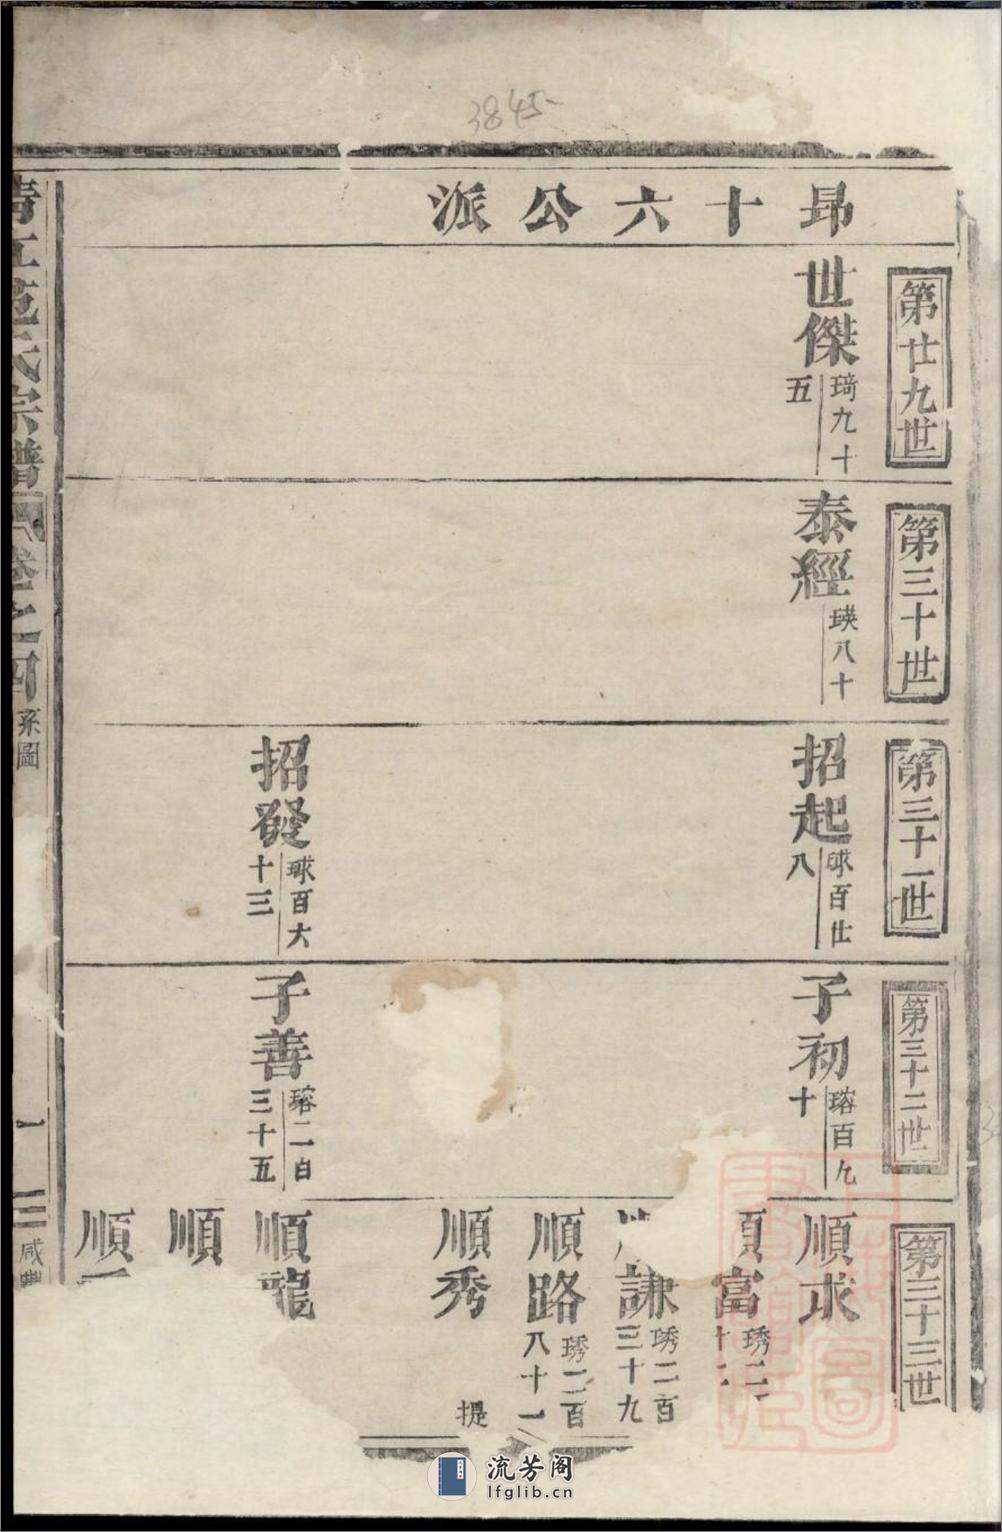 3845
昻十六公派
第廿九世
世傑 琦九十五
第三十世
泰經 瑛八十
第三十一世
招起 球百廿八
招發 球百六十三
第三十二世
子初 瑢百九十
子善 瑢二百三十五
第三十三世
順求
富 琇二
謙 琇二百三十九
順路 琇二百八十一
順秀 提
順龍
順
順
范氏宗譜
卷之四
系圖
一
咸豐
流芳阁
lfglib.cn